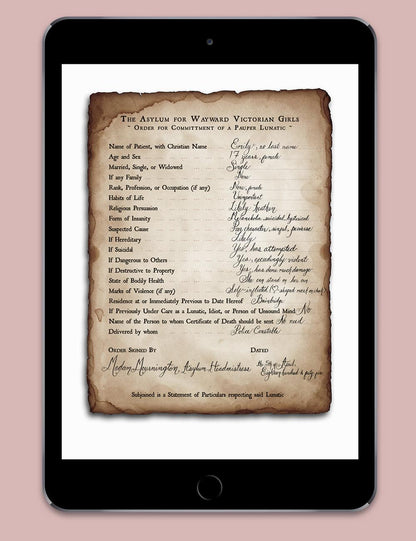 The Asylum for Wayward Victorian Girls
~ Order for Committment of a Pauper Lunatic ~
Name of Patient, with Christian Name Emily, no last name
Age and Sex 17 years, female
Married, Single, or Widowed Single
If any Family None
Rank, Profession, or Occupation (if any) None, female
Habits of Life Unimportant
Religious Persuasion Likely heathen
Form of Insanity Melancholia, suicidal, hysterical
Suspected Cause Poor character, sinful, perverse
If Hereditary Likely
If Suicidal Yes, has attempted
If Dangerous to Others Yes, exceedingly violent
If Destructive to Property Yes, has done much damage
State of Bodily Health She can stand on her own
Marks of Violence (if any) Self-inflicted (♡-shaped mark on
Residence at or Immediately Previous to Date Hereof Bainbridge
If Previously Under Care as a Lunatic, Idiot, or Person of Unsound Mind No
Name of the Person to whom Certificate of Death should be sent No need
Delivered by whom Police Constable
Order Signed By Dated
Madam Mournington, Asylum Headmistress the 5th of April,
Eighteen hundred &
Subjoined is a Statement of Particulars respecting said Lunatic